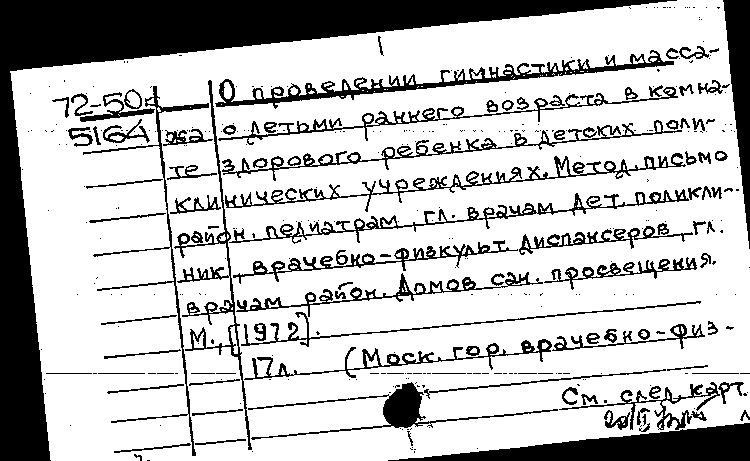 72-50д О проведении гимнастики и масса-
5164 жа с детьми раннего возраста в комна-
те здорового ребенка в детских поли-
клинических учреждениях. Метод. письмо
район. педиатрам, гл. врачам дет. поликли-
ник, врачебно-физкульт. диспансеров, гл.
врачам район. Домов сан. просвещения.
М., [1972].
17л. (Моск. гор. врачебно-физ-
См. след. карт.